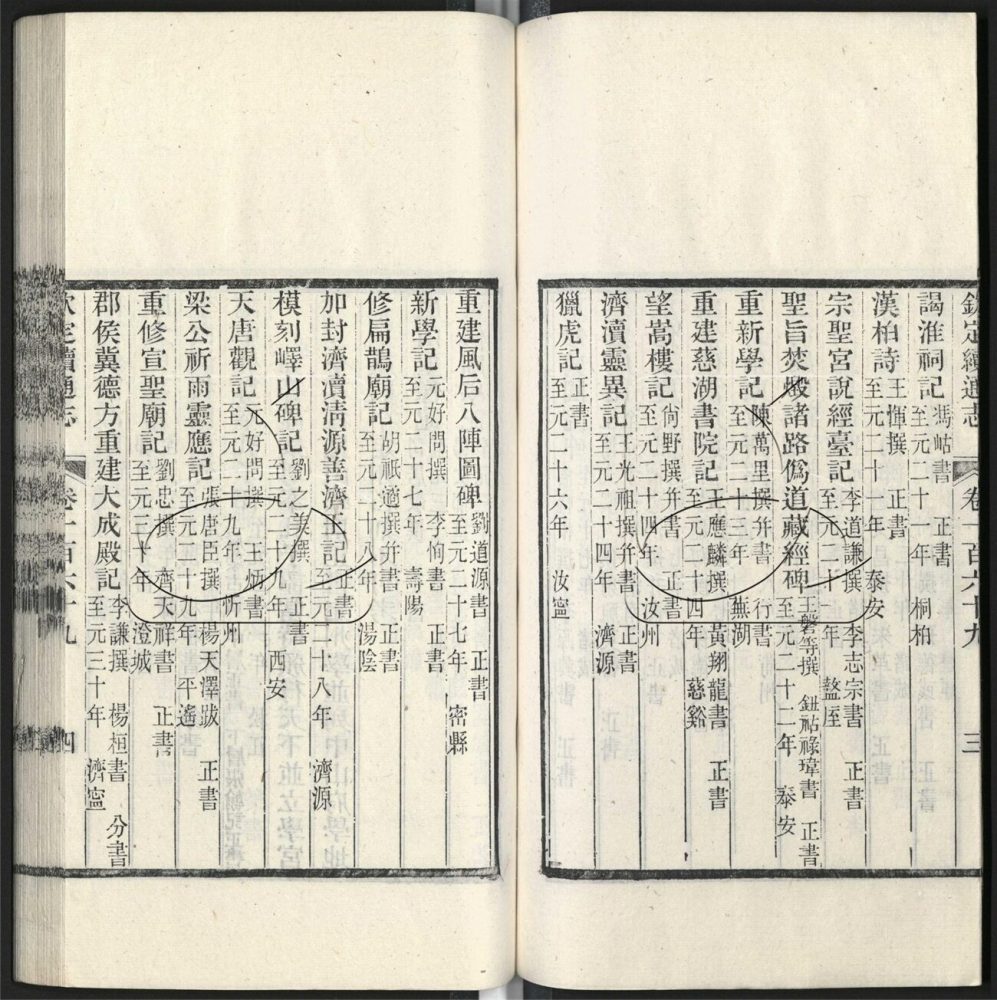 欽定續通志 卷一百六十九 三
謁淮祠記 馮岵書 正書 至元二十一年 桐柏
漢柏詩 王惲撰 正書 至元二十一年 泰安
宗聖宮說經臺記 李道謙撰 李志宗書 正書 至元二十一年 盩厔
聖旨焚燬諸路僞道藏經碑 王磐等撰 書 正書 至元二十二年 泰安
重新學記 陳萬里撰幷書 行書 至元二十三年 蕪湖
重建慈湖書院記 王應麟撰 黃翔龍書 正書 至元二十四年 慈谿
望嵩樓記 尙野撰幷書 正書 至元二十四年 汝州
濟瀆靈異記 王光祖撰幷書 正書 至元二十四年 濟源
獵虎記 正書 至元二十六年 汝寧
重建風后八陣圖碑 劉道源書 正書 至元二十七年 密縣
新學記 元好問撰 李恂書 正書 至元二十七年 壽陽
修扁鵲廟記 胡祇遹撰幷書 正書 至元二十八年 湯陰
加封濟瀆淸源善濟王記 正書 至元二十八年 濟源
模刻嶧山碑記 劉之美撰 正書 至元二十九年 西安
天唐觀記 元好問撰 王炳書 至元二十九年 忻州
梁公祈雨靈應記 張唐臣撰 楊天澤跋 正書 至元二十九年 平遙
重修宣聖廟記 劉忠撰 齊天祥書 正書 至元三十年 澄城
郡侯冀德方重建大成殿記 李謙撰 楊桓書 分書 至元三十年 濟寧
欽定續通志 卷一百六十九 四